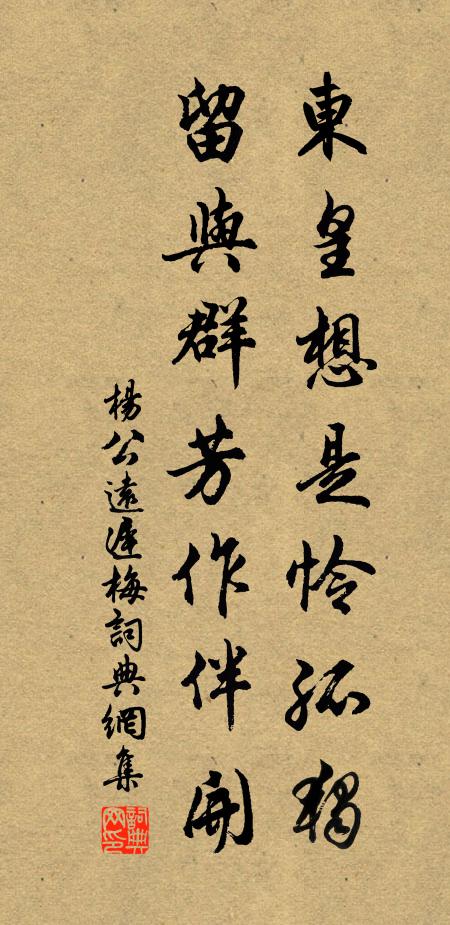 東皇想是怜孤獨
留與群芳作伴開
楊公遠遲梅詞典網集
詞典網印